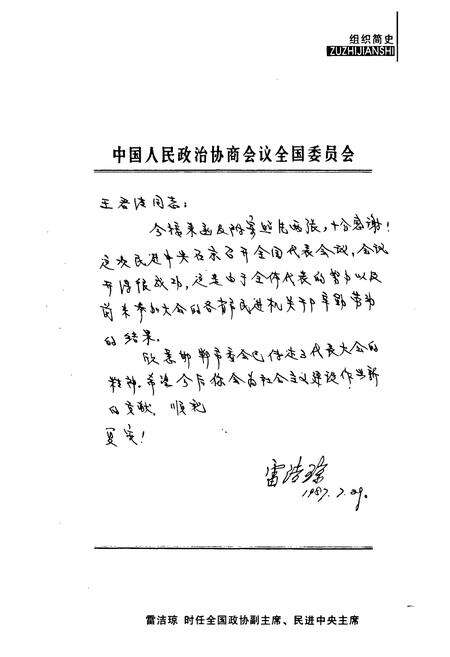 组织简史
ZUZHIJIANSHI
中国人民政治协商会议全国委员会
王君洁同志:
今接来函及附寄照片两张,十分感谢!
这次民进中央在京召开全国代表会议,会议
开得很成功,这是由于全体代表的努力以及
前来参加大会的各省市民进机关干部辛勤劳动
的结果。
欣悉邯郸市委会已传达了代表大会的
精神。希望今后你会为社会主义建设作出新
的贡献。顺祝
夏安!
雷洁琼
1987.7.29.
雷洁琼 时任全国政协副主席、民进中央主席